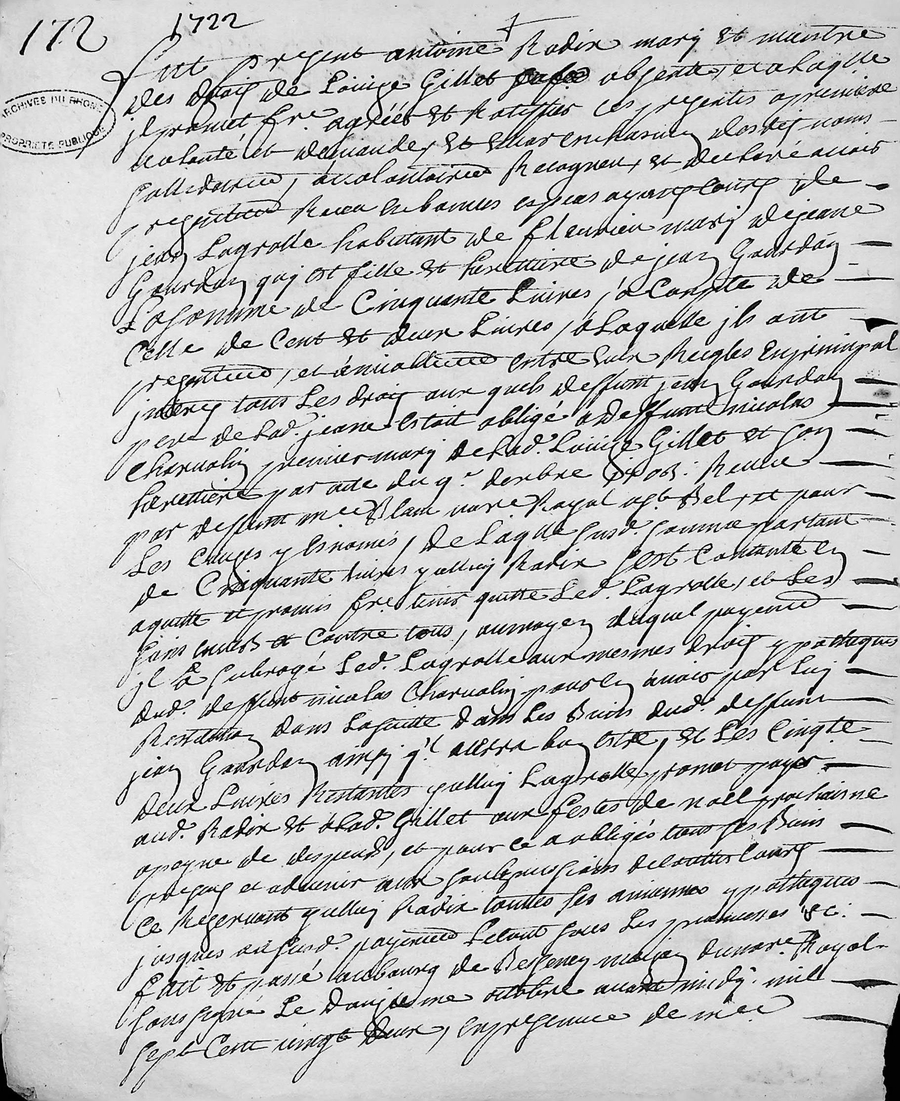 172
1722
ARCHIVES DU RHONE
PROPRIETE PUBLIQUE
Fut present antoine Radix mary et maitre
des droits de Louise Gillet absente, et a laqlle
jl promet fre agréer et Ratiffier ces presentes a premiere
et demande, et en chacun desdts noms
, a volontairemt Recogneu, et declaré avoir
presentemt Receu en bonnes especes ayant cours de
jean Lagrolle habitant de fleurieu mary de jeane
Gourdan qui est fille et heretiere de jean Gourdan
La somme de Cinquante Livres, a Compte de
Celle de Cent et deux Livres, a Laquelle jls ont
presentemt, et entre eux Reigles En prinsipal
jnterets tous Les droits aux quels deffunt jean Gourdan
pere de Lad. jeane Estoit obligé a deffunt nicolas
Charvolin premier mary de Lad. Louise Gillet et son
heretiere par acte du 9r Receu
par deffunt mre Blanc nore Royal Bel, et pour
Les Causes y Enoncés, de Laqlle susd. somme partant
de Cinquante livres yelluy Radix s'est Contanté en
quitte et promis fre tenir quitte Led. Lagrolle, et Les
siens envers et Contre tous, au moyen duquel payement
jl a subrogé Led. Lagrolle aux mesmes droits ypotteques
dud. deffunt nicolas Charvolin pour en avoir par Luy
Restitution dans La suitte dans Les Biens dud. deffunt
jean Gourdan ainsy ql verra bon estre, et Les Cinqte
deux Livres Restantes yelluy Lagrolle promet payer
aud. Radix et a Lad. Gillet aux festes de noel prochaine
a peyne de despens, et pour ce a obligés tous ses Biens
presens et advenir aux de touttes Cours
Ce Reservant yelluy Radix touttes ses antiennes ypotteques
jusques au susd. payement Le tout sous Les promesses &c.
fait et passé au bourg de Bessenay maison du nore Royal
soussigné Le douzieme octobre avant midy mill
sept Cent vingt deux, en presence de mre